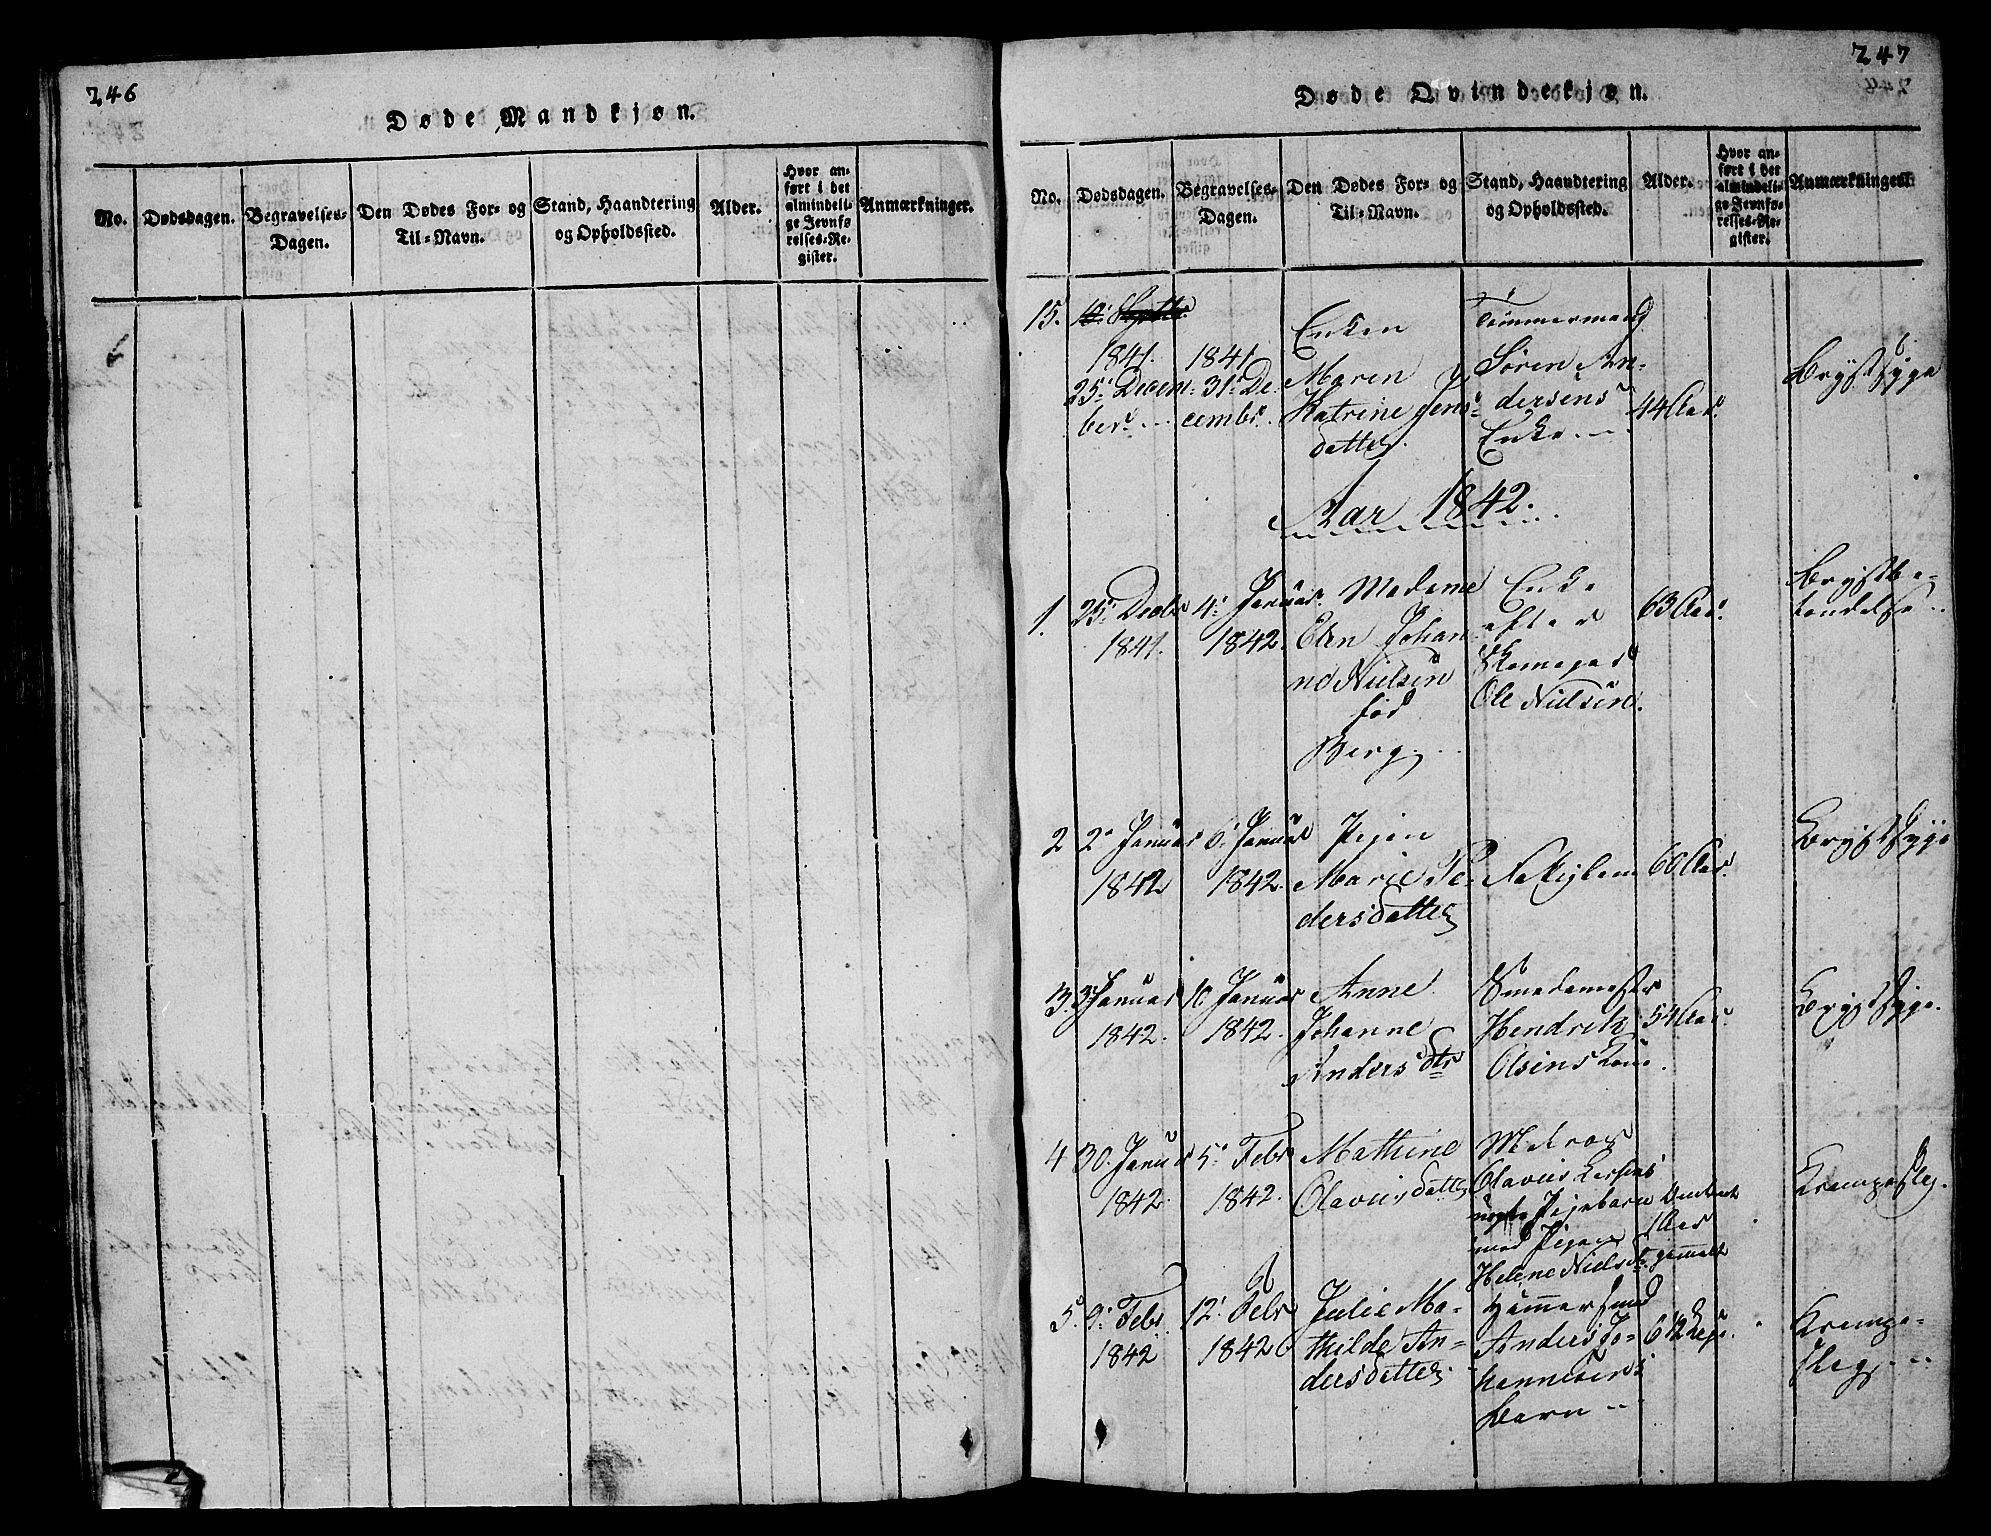 246
Døde Mandkjøn.
No. Dødsdagen. Begravelses-Dagen. Den Dødes For- og Til-Navn. Stand, Haandtering og Opholdssted. Alder. Hvor anført i det almindelige Jevnførelses-Register. Anmærkninger.
247
Døde Qvindekjøn.
No. Dødsdagen. Begravelses-Dagen. Den Dødes For- og Til-Navn. Stand, Haandtering og Opholdssted. Alder. Hvor anført i det almindelige Jevnførelses-Register. Anmærkninger.
15.
1841.
25. Decem-
ber.
1841
31. De-
cembr.
Enken
Maren
Katrine Jens-
datter
Tømmermand
Søren An-
dersens
Enke
44 Aar.
Brystsyge
Aar 1842.
1.
25. Decbr
1841.
4. Januar.
1842.
Madame
Elen Johan-
ne Nielsen
fød
Berg
Enke
efter
Ole Nielsen.
63 Aar.
Brystbe-
tendelse
2
2. Januar
1842
6. Januar
1842.
Pigen
Marie Pe-
dersdatter
Fattiglem
60 Aar.
Brystsyge
3.
3. Januar
1842.
10 Januar
1842.
Anne
Johanne
Anders dtr
Smedemester
Hendrik
Olsens Kone
54 Aar.
Brystsyge.
4
30. Januar
1842.
5. Febr
1842.
Mathine
Olavusdatter
Matros
Olavus
uægte Pigebarn
med Pigen
Helene Niels d.
1 Aar
gammelt
Krampeslag.
5.
9. Febr.
1842
12. Febr
1842
Julie Ma-
thilde An-
dersdatter
Hammersmed
Anders Jo-
hannesens
Barn
6 1/2
Krampe-
slag